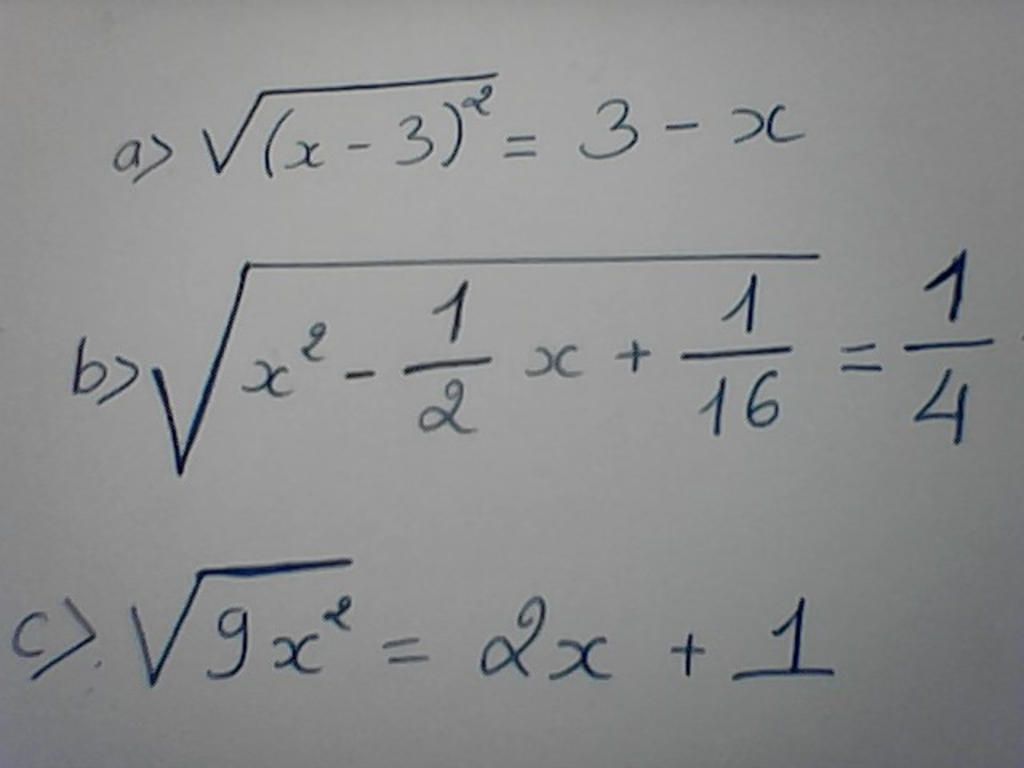 a> √(x - 3)² = 3 - x
b> √x² - 1/2 x + 1/16 = 1/4
c>. √9x² = 2x + 1